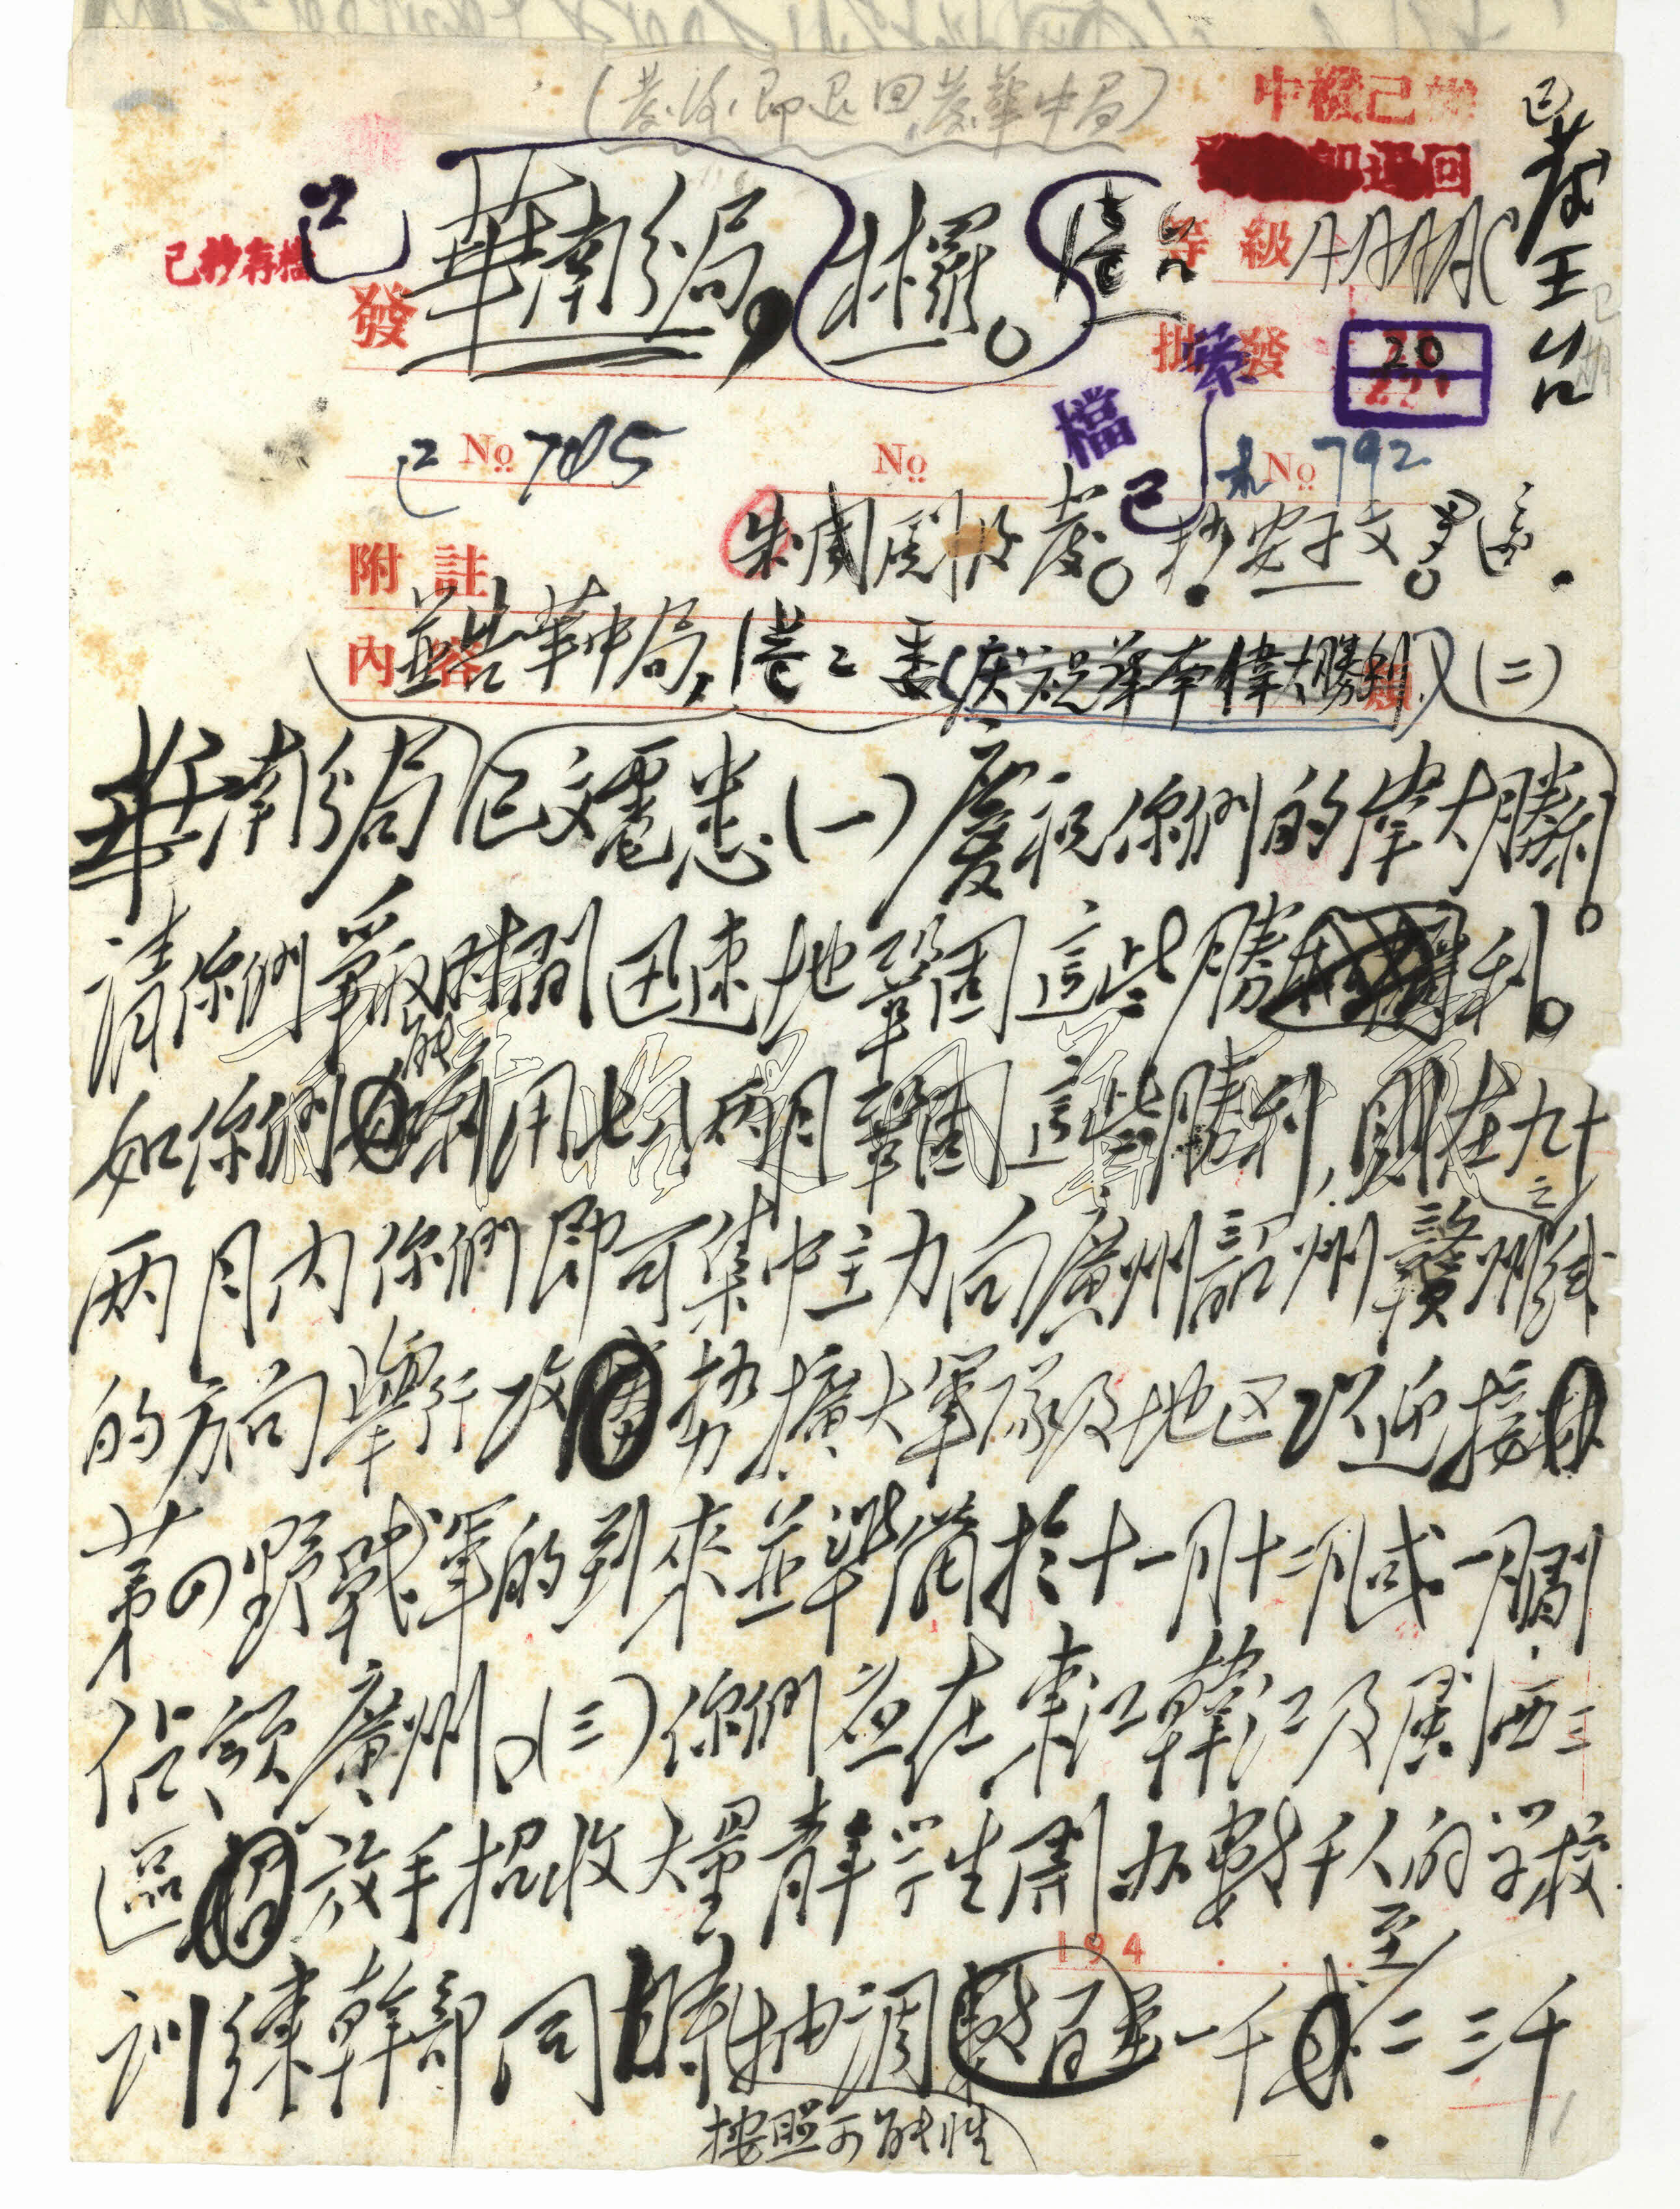 (發後即退回發華中局)
中機已
即退回
已發王台
已抄存檔
已
發 華南分局，林羅。
等級 AAAA
批發
20
檔
已 No 705
No
No 792
已
附註
朱周閱後發。抄安子文。
內容
並告華中局，
(慶祝華南偉大勝利)
類
(二)
華南分局巳文電悉(一)慶祝你們的偉大勝利。
請你們爭取時間迅速地鞏固這些勝利。
如你們能利用七八兩月鞏固這些勝利，則在九十
兩月內你們即可集中主力向廣州韶州贛州之線
的方向舉行攻勢擴大軍隊及地区以迎接
第四野戰軍的到來並準備於十一月十二月或一月間
佔領廣州。(三)你們應在東江韓江及廣西三
區放手招收大量青年學生開办數千人的学校
194
訓練幹部同時抽調一千至二三千
按照可能性